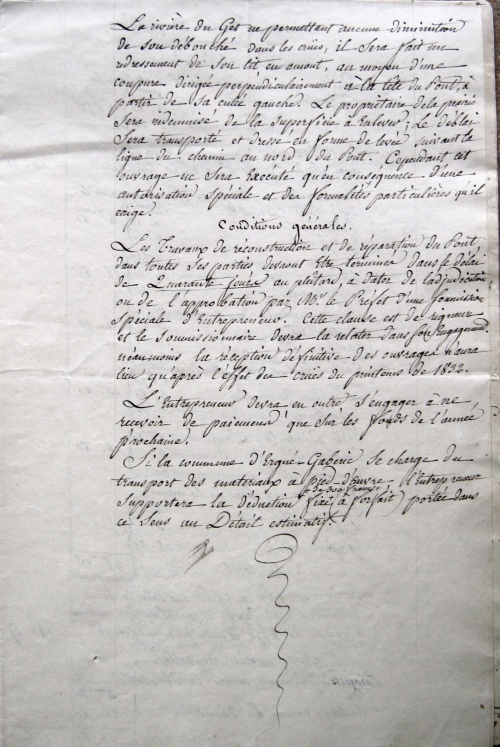 La rivière du Get ne permettant aucune diminution
de son débouché dans les crües, il sera fait un
redressement de son lit en amont, au moyen d'une
coupure dirigée perpendiculairement à la tête du Pont, à
partir de sa culée gauche. Le propriétaire de la prairie
sera indemnisé de la superficie à enlever; Le déblai
sera transporté et dressé en forme de levée suivant la
ligne du chemin au nord du Pont. Cependant cet
ouvrage ne sera éxécuté qu'en conséquence d'une
autorisation spéciale et des formalités particulières qu'il
exige.
Conditions générales.
Les Travaux de reconstruction et de réparation du Pont,
dans toutes ses parties devront être terminés dans le délai
de Quarante jours au plûtard, à dater de l'adjudication
ou de l'approbation par Mr. le Préfet d'une soumission
spéciale d'Entrepreneur. Cette clause est de rigueur
et le soumissionnaire devra la relater dans son engagement.
néanmoins la réception définitive des ouvrages n'aura
lieu qu'après l'effet des crües du printems de 1832.
L'Entrepreneur devra en outre s'engager à ne
recevoir de paiemens que sur les fonds de l'année
prochaine.
Si la commune d'Ergué-Gabéric se charge du
transport des matériaux à pied d'œuvre, l'Entrepreneur
supportera la déduction fixé à forfait portée dans
ce sens au Détail estimatif.